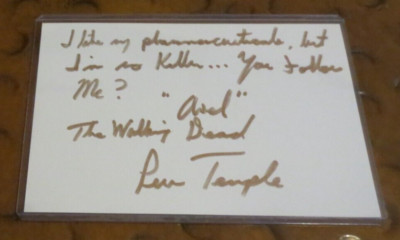 I like my pharmaceuticals, but
I'm no Killer... You follow
Me? "Axel"
The Walking Dead
Lew Temple